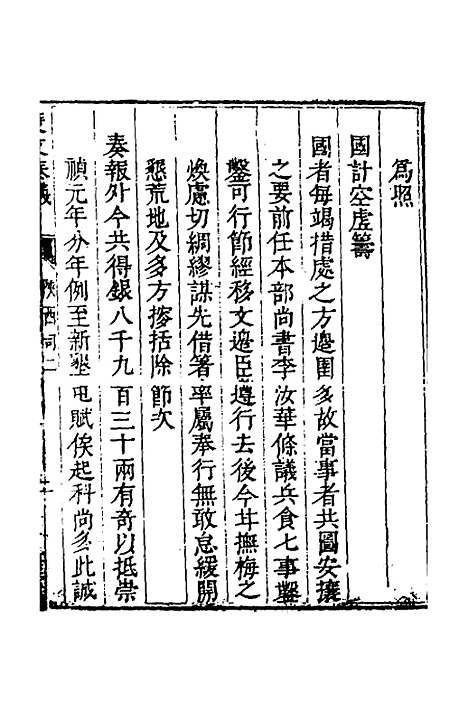 爲照
國計空虛籌
國者每竭措處之方邊圉多故當事者共圖安攘
之要前任本部尚書李汝華條議兵食七事鑿
鑿可行節經移文邊臣遵行去後今甘撫梅之
煥慮切綢繆謀先借箸率屬奉行無敢怠緩開
懇荒地及多方搜括除節次
奏報外今共得銀八千九百三十兩有奇以抵崇
禎元年分年例至新墾屯賦俟起科尚多此誠
陝西司二